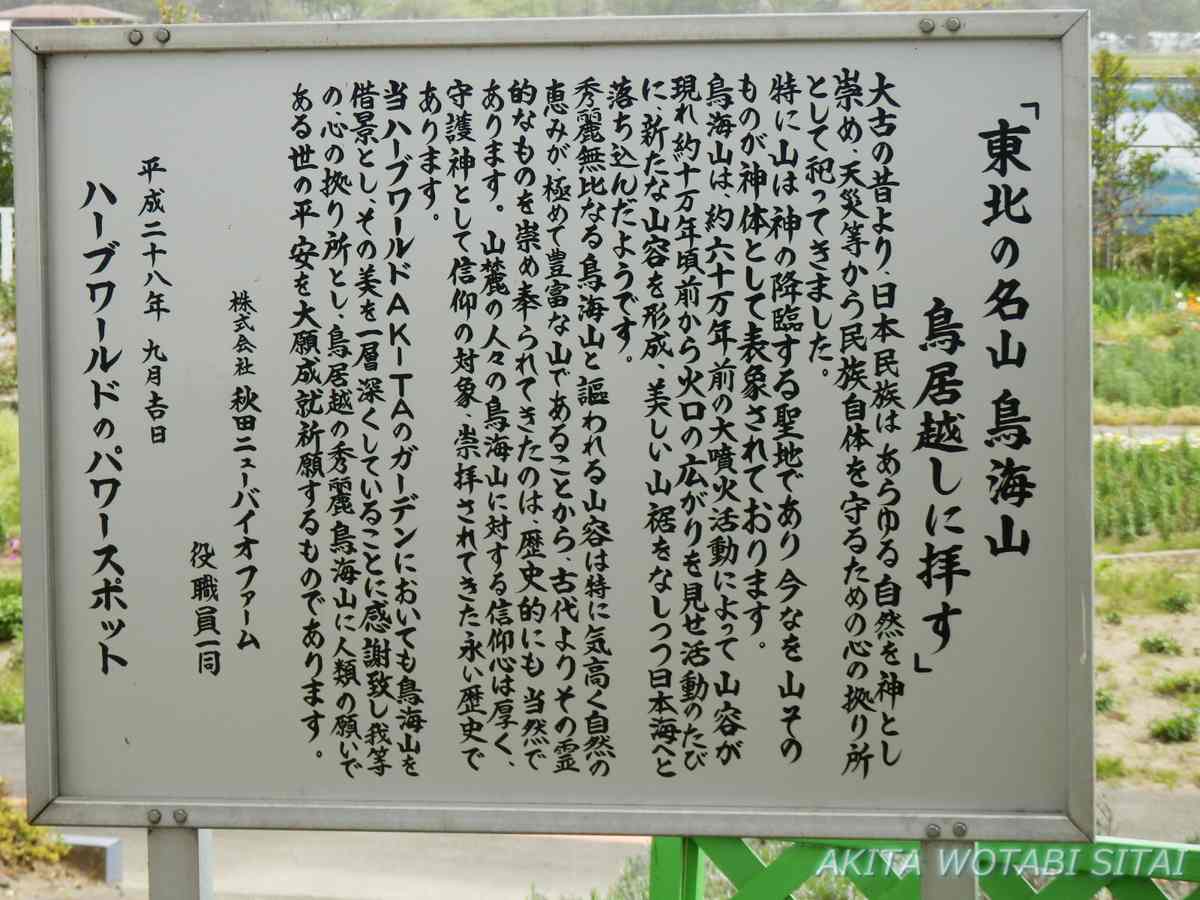 「東北の名山 鳥海山
鳥居越しに拝す」
大古の昔より、日本民族は あらゆる 自然を 神とし
崇め、天災等から民族自体を守るための心の拠り所
として祀ってきました。
特に山は神の降臨する聖地であり 今なを 山その
ものが神体として表象されております。
鳥海山は、約六十万年前の大噴火活動によって 山容が
現れ 約十万年頃前から火口の広がりを見せ活動のたび
に、新たな山容を形成、美しい山裾をなしつつ日本海へと
落ち込んだようです。
秀麗無比なる鳥海山と謳われる山容は特に気高く自然の
恵みが 極めて豊富な山であることから、古代よりその霊
的なものを崇め奉られてきたのは、歴史的にも 当然で
あります。山麓の人々の鳥海山に対する信仰心は厚く、
守護神として信仰の対象、崇拝されてきた永い歴史で
あります。
当ハーブワールドAKITAのガーデンにおいても鳥海山を
借景とし、その美を一層深くしていることに感謝致し我等
の、心の拠り所とし、鳥居越の秀麗鳥海山に人類の願いで
ある世の平安を大願成就祈願するものであります。
株式会社 秋田ニューバイオファーム
役職員一同
平成二十八年 九月吉日
ハーブワールドのパワースポット
AKITA WOTABI SITAI